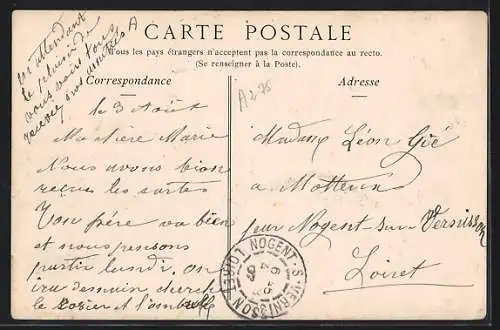 en attendant
le plaisir de
vous voir tous
recevez nos amitiés A
CARTE POSTALE
Tous les pays étrangers n'acceptent pas la correspondance au recto.
(Se renseigner à la Poste).
Correspondance
le 3 Août
Ma chère Marie
Nous avons bien
reçues les cartes
Ton père va bien
et nous pensons
partir lundi. on
ira demain cherch
le et
Adresse
A2 75
Madame Léon Gié
a
par Nogent-sur-Vernisson
Loiret
NOGENT-S-VERNISSON (LOIRET)